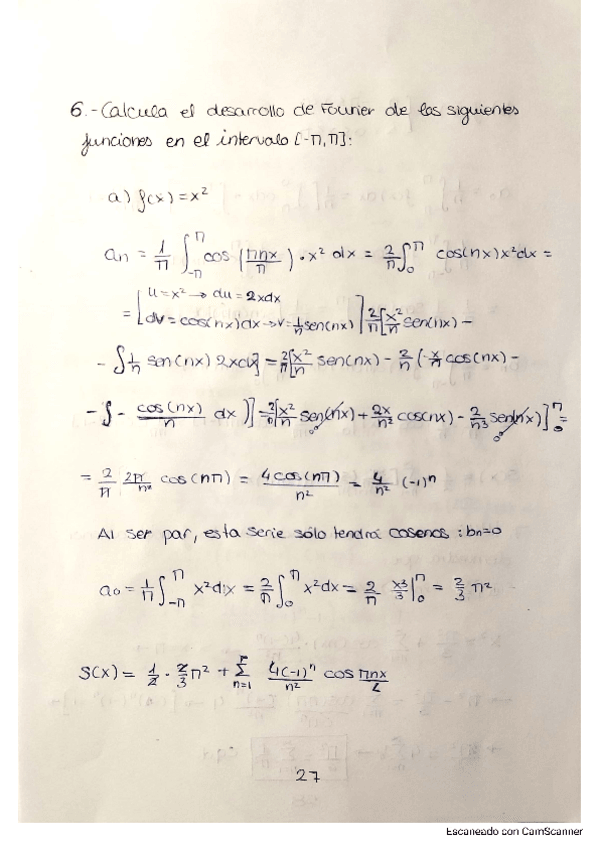 6.- Calcula el desarrollo de Fourier de las siguientes
funciones en el intervalo [-π, π]:
a) f(x) = x²
an = 1/π ∫_{-π}^{π} cos(πnx/π) · x² dx = 2/π ∫_0^π cos(nx)x²dx =
= [u = x² → du = 2xdx
dv = cos(nx)dx → v = 1/n sen(nx)] 2/π [x²/n sen(nx) -
- ∫ 1/n sen(nx) 2xdx] = 2/π [x²/n sen(nx) - 2/n (-x/n cos(nx) -
- ∫ - cos(nx)/n dx )] = 2/π [x²/n sen(nx) + 2x/n² cos(nx) - 2/n³ sen(nx)]_0^π =
= 2/π 2π/n² cos(nπ) = 4cos(nπ)/n² = 4/n² (-1)ⁿ
Al ser par, esta serie sólo tendrá cosenos : bn=0
a₀ = 1/π ∫_{-π}^{π} x²dx = 2/π ∫_0^π x²dx = 2/π x³/3 |_0^π = 2/3 π²
S(x) = 1/2 · 2/3 π² + Σ_{n=1} 4(-1)ⁿ/n² cos πnx/L
27
Escaneado con CamScanner